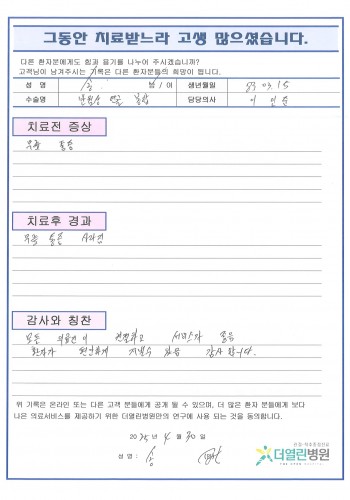 그동안 치료받느라 고생 많으셨습니다.
다른 환자분에게도 힘과 용기를 나누어 주시겠습니까?
고객님이 남겨주시는 기록은 다른 환자분들의 희망이 됩니다.
성 명 송 남 / 여 생년월일 83 03. 15
수술명 반월상 연골 봉합 담당의사
치료전 증상
무릎 통증
치료후 경과
무릎 통증 사라짐
감사와 칭찬
모든 의료진이 친절하고 서비스가 좋음
환자가 편안하게 지낼수 있음 감사합니다.
위 기록은 온라인 또는 다른 고객 분들에게 공개 될 수 있으며, 더 많은 환자 분들에게 보다
나은 의료서비스를 제공하기 위한 더열린병원만의 연구에 사용 되는 것을 동의합니다.
2025 년 4 월 30 일
성 명 : 송
더열린병원